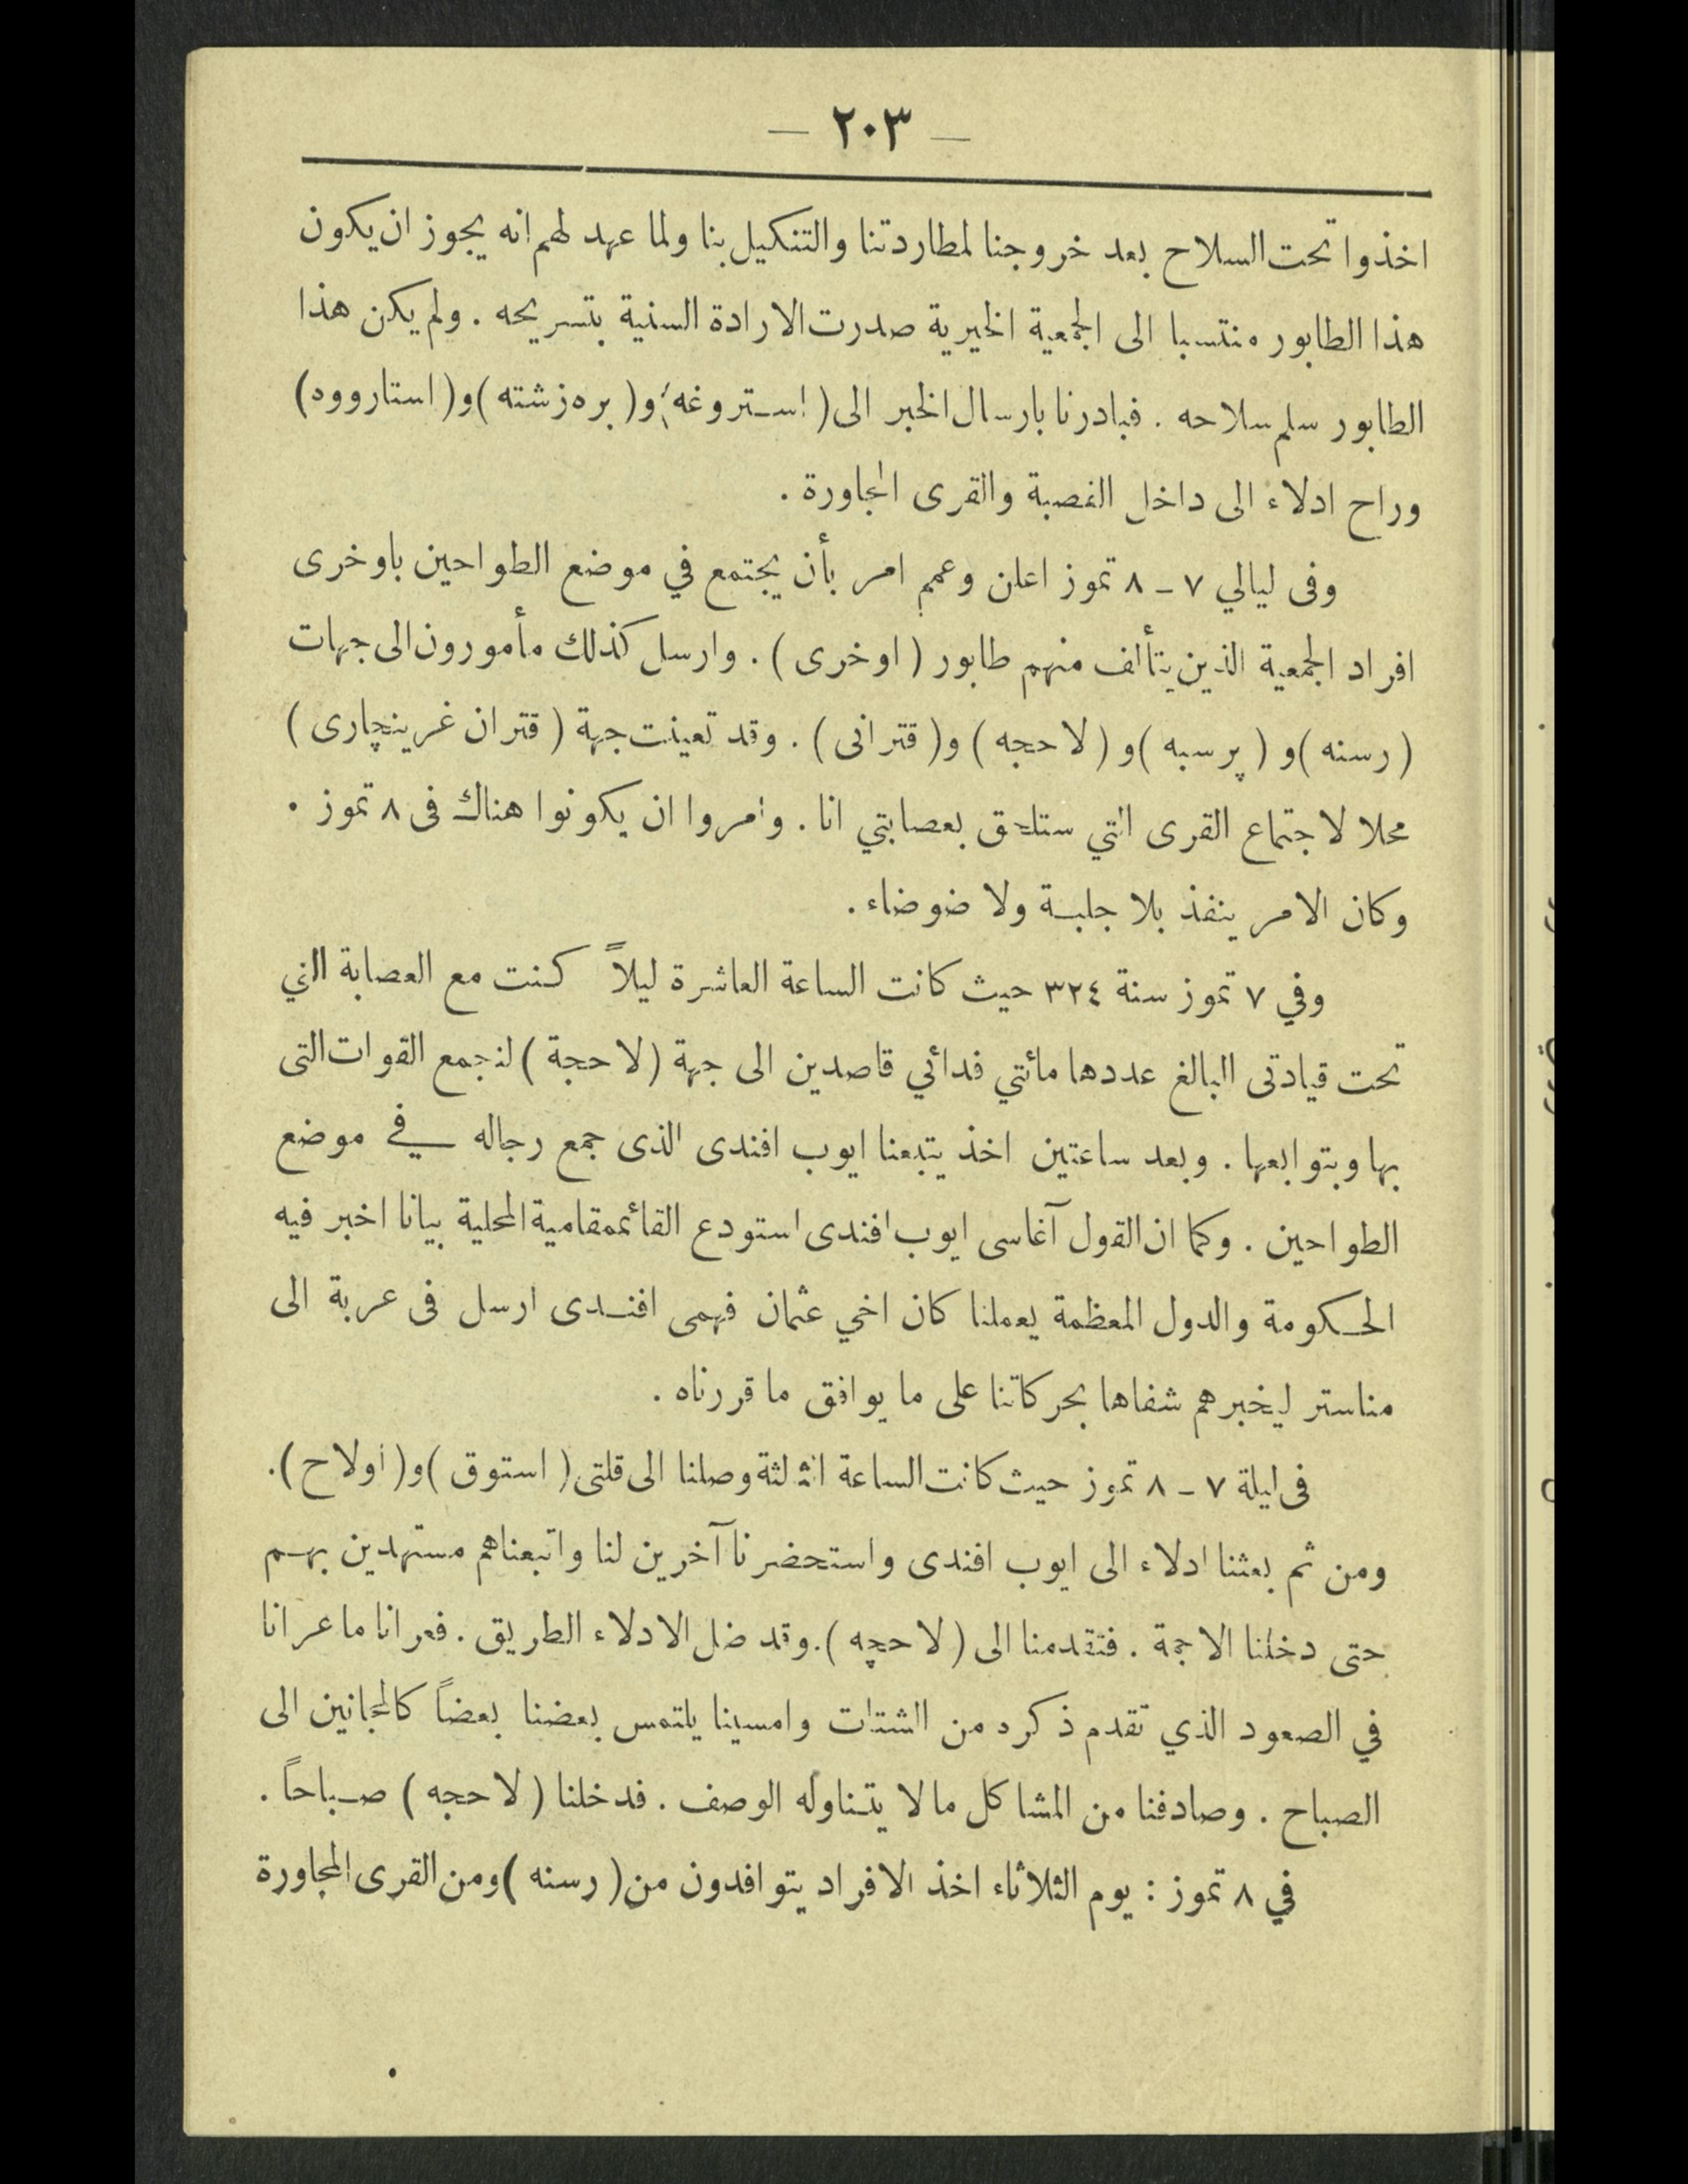 — ٢٠٣ —
اخذوا تحت السلاح بعد خروجنا لمطاردتنا والتنكيل بنا ولما عهد لهم انه يجوز ان يكون
هذا الطابور منتسبا الى الجمعية الخيرية صدرت الارادة السنية بتسريحه . ولم يكن هذا
الطابور سلم سلاحه . فبادرنا بارسال الخبر الى ( استروغه ) و( بره زشته ) و( استارووه )
وراح ادلاء الى داخل القصبة والقرى المجاورة .
وفى ليالي ٧ ـ ٨ تموز اعلن وعمم امر بأن يجتمع في موضع الطواحين باوخرى
افراد الجمعية الذين يتألف منهم طابور ( اوخرى ) . وارسل كذلك مأمورون الى جهات
( رسنه ) و ( پرسبه ) و ( لاحجه ) و( قترانى ) . وقد تعينت جهة ( قتران غرينچارى )
محلا لاجتماع القرى التي ستلحق بعصابتي انا . وامروا ان يكونوا هناك فى ٨ تموز .
وكان الامر ينفذ بلا جلبة ولا ضوضاء .
وفي ٧ تموز سنة ٣٢٤ حيث كانت الساعة العاشرة ليلاً كنت مع العصابة التي
تحت قيادتى البالغ عددها مائتي فدائي قاصدين الى جهة ( لاحجة ) لنجمع القوات التى
بها وبتوابعها . وبعد ساعتين اخذ يتبعنا ايوب افندى الذى جمع رجاله في موضع
الطواحين . وكما ان القول آغاسى ايوب افندى استودع القائممقامية المحلية بيانا اخبر فيه
الحكومة والدول المعظمة يعملنا كان اخي عثمان فهمى افندى ارسل فى عربة الى
مناستر ليخبرهم شفاها بحركاتنا على ما يوافق ما قررناه .
فى ليلة ٧ ـ ٨ تموز حيث كانت الساعة الثالثة وصلنا الى قلتى ( استوق ) و( اولاح ) .
ومن ثم بعثنا ادلاء الى ايوب افندى واستحضرنا آخرين لنا واتبعناهم مستهدين بهم
حتى دخلنا الاجمة . فتقدمنا الى ( لاحچه ) . وقد ضل الادلاء الطريق . فعرانا ما عرانا
في الصعود الذي تقدم ذكره من الشتات وامسينا يلتمس بعضنا بعضاً كالمجانين الى
الصباح . وصادفنا من المشاكل ما لا يتناوله الوصف . فدخلنا ( لاحجه ) صباحاً .
في ٨ تموز : يوم الثلاثاء اخذ الافراد يتوافدون من ( رسنه ) ومن القرى المجاورة